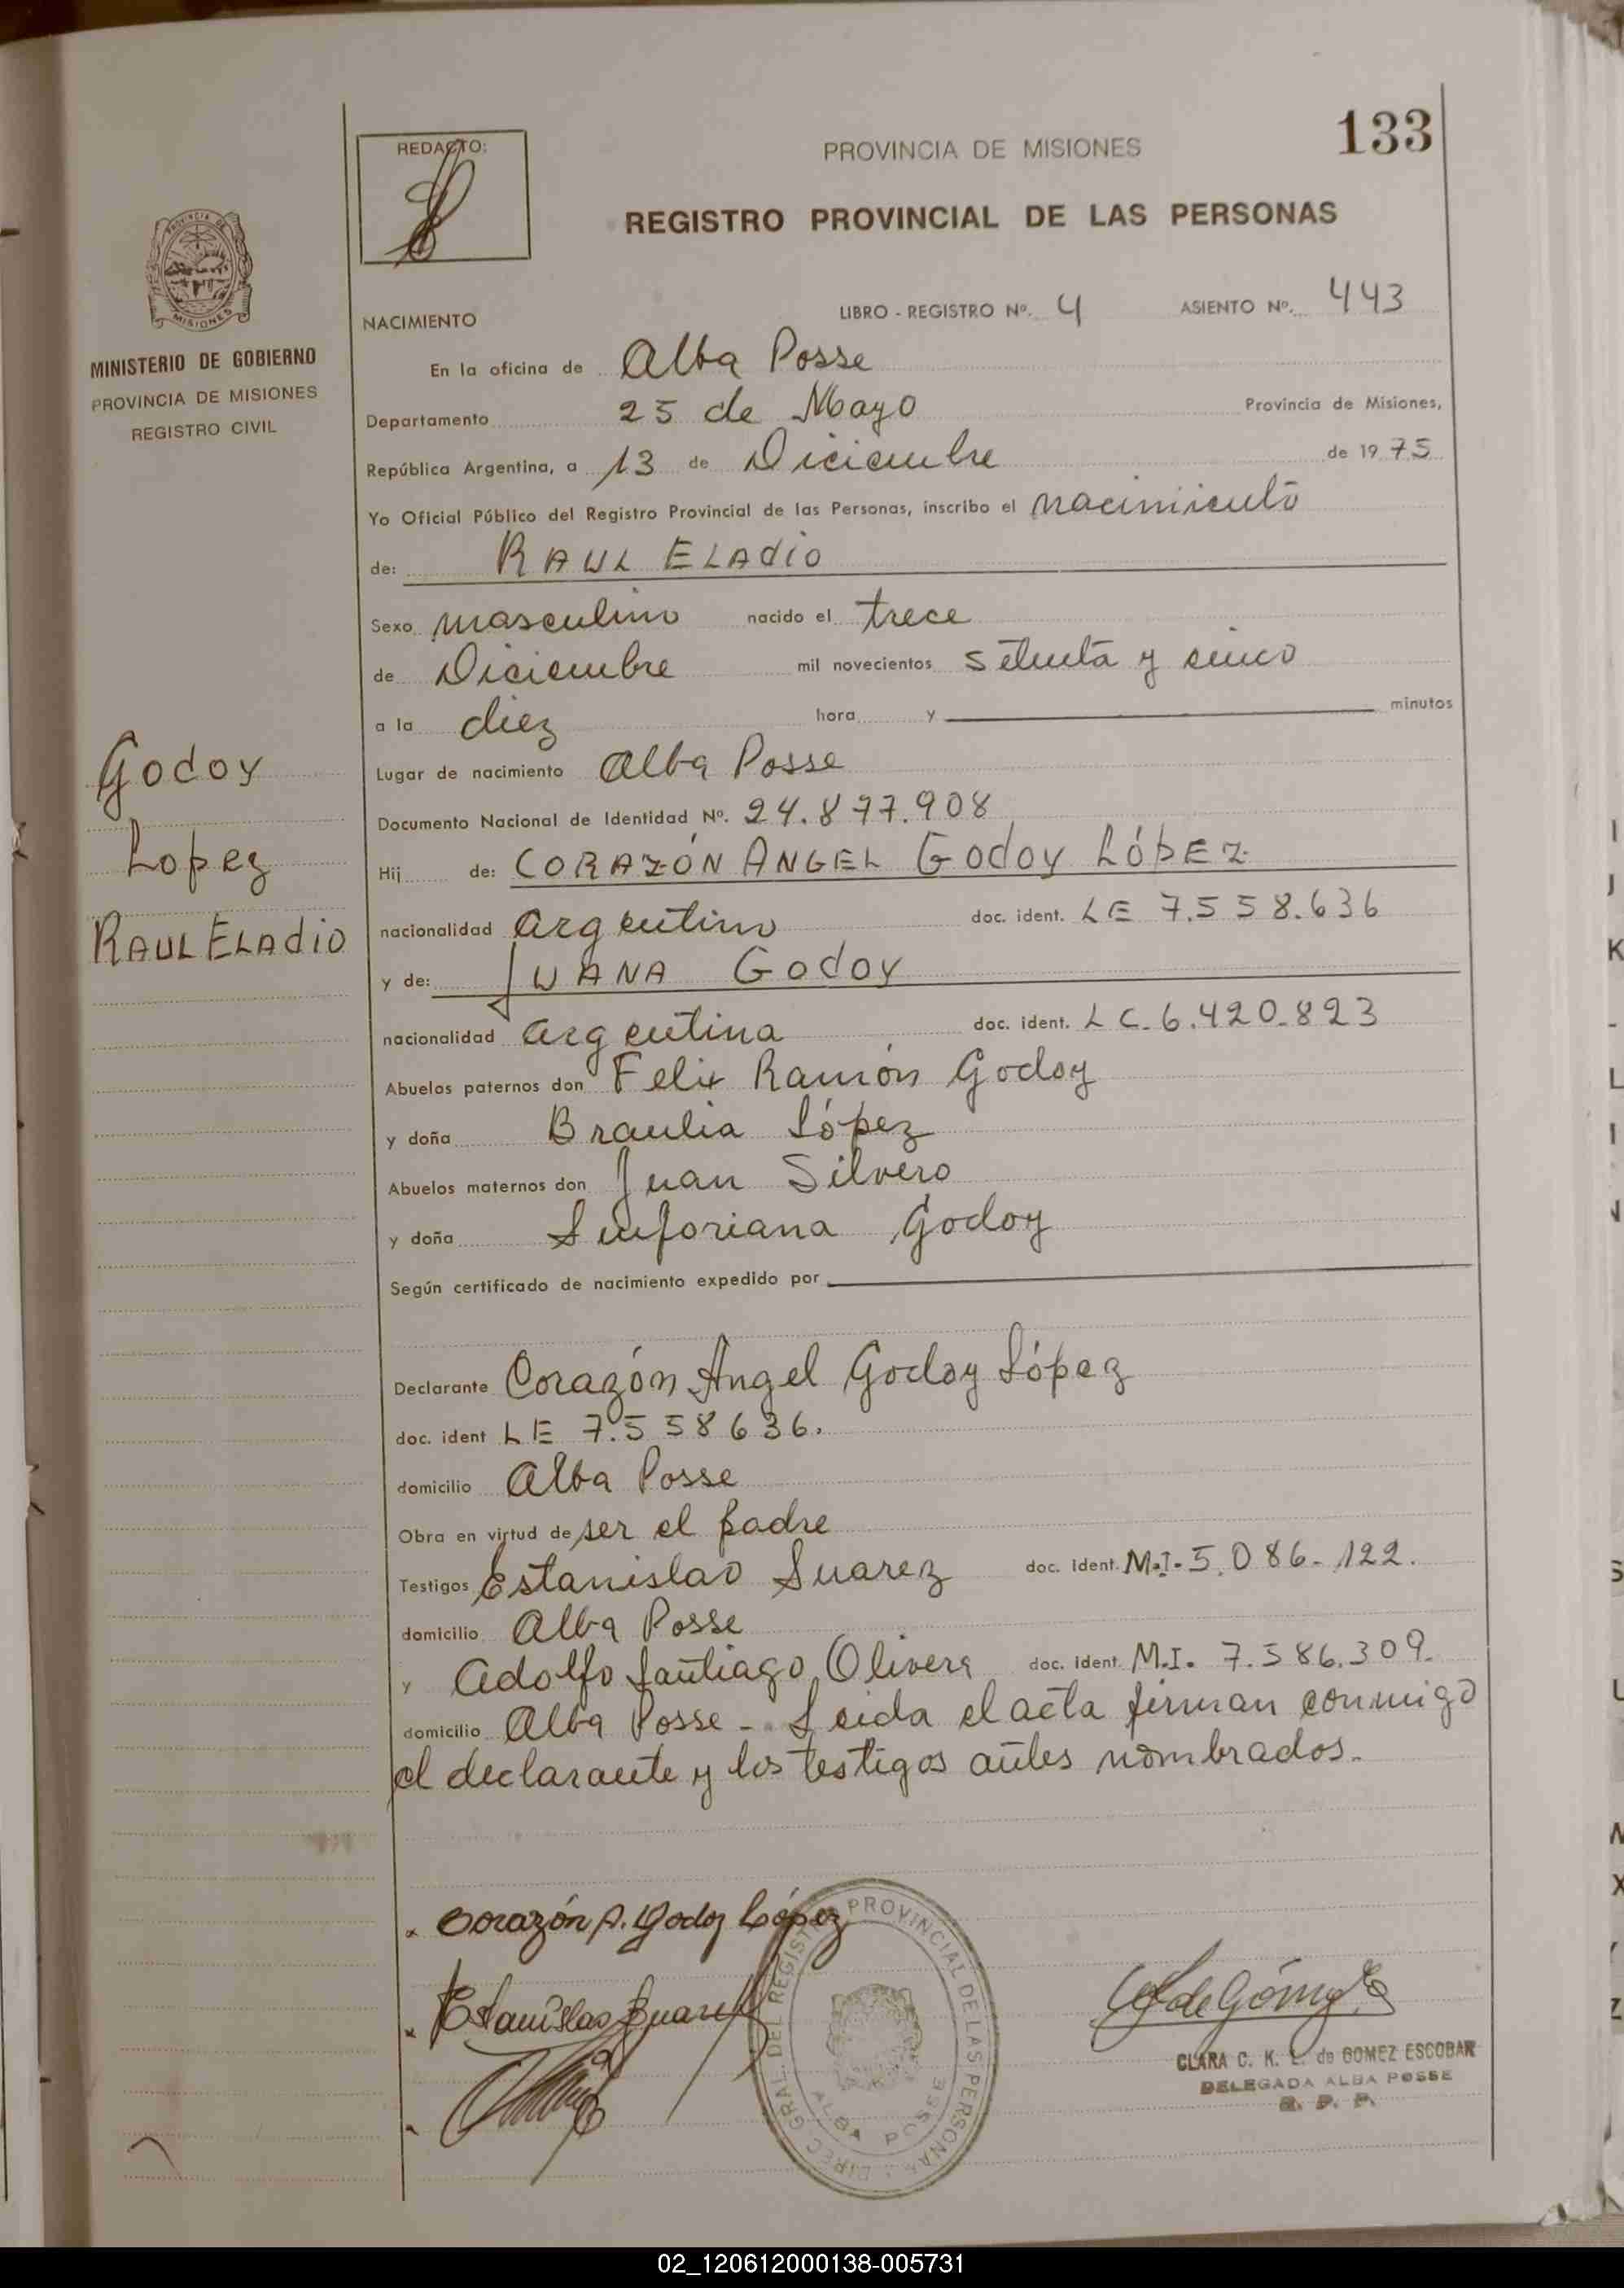 133
REDACTO:
PROVINCIA DE MISIONES
REGISTRO PROVINCIAL DE LAS PERSONAS
PROVINCIA DE
MISIONES
MINISTERIO DE GOBIERNO
PROVINCIA DE MISIONES
REGISTRO CIVIL
Godoy
Lopez
RAUL ELAdio
NACIMIENTO LIBRO - REGISTRO Nº. 4 ASIENTO Nº. 443
En la oficina de Alba Posse
Departamento 25 de Mayo Provincia de Misiones,
República Argentina, a 13 de Diciembre de 1975
Yo Oficial Público del Registro Provincial de las Personas, inscribo el nacimiento
de: RAUL ELAdio
Sexo masculino nacido el trece
de Diciembre mil novecientos setenta y cinco
a la diez hora y minutos
Lugar de nacimiento Alba Posse
Documento Nacional de Identidad Nº. 24.877.908
Hij de: CORAZÓN ANGEL Godoy LópEz
nacionalidad argentino doc. ident. LE 7.558.636
y de: JUANA Godoy
nacionalidad argentina doc. ident. LC.6.420.823
Abuelos paternos don Felix Ramón Godoy
y doña Braulia López
Abuelos maternos don Juan Silvero
y doña Sinforiana Godoy
Según certificado de nacimiento expedido por
Declarante Corazón Angel Godoy López
doc. ident LE 7.558636.
domicilio Alba Posse
Obra en virtud de ser el padre
Testigos Estanislao Suarez doc. ident. M.I. 5.086.122.
domicilio Alba Posse
y Adolfo Santiago Olivera doc. ident. M.I. 7.586.309.
domicilio Alba Posse - Leida el acta firman conmigo
el declarante y los testigos antes nombrados.
Corazón A. Godoy López
Estanislao Suarez
DIREC. GRAL. DEL REGISTRO PROVINCIAL DE LAS PERSONAS
ALBA POSSE
de Gómez E
CLARA C. K. L. de GOMEZ ESCOBAR
DELEGADA ALBA POSSE
R. P. P.
02_120612000138-005731